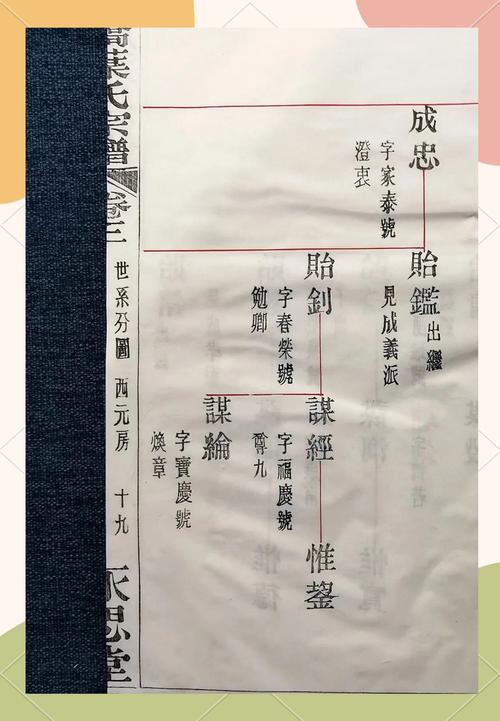 成忠
字家泰號
澄衷
貽鑑
出繼
見成義派
貽釗
字春榮號
勉卿
謀經
字福慶號
尊九
惟鋆
謀綸
字寶慶號
煥章
葉氏宗譜
卷三
世系分圖
西元房
十九
永思堂